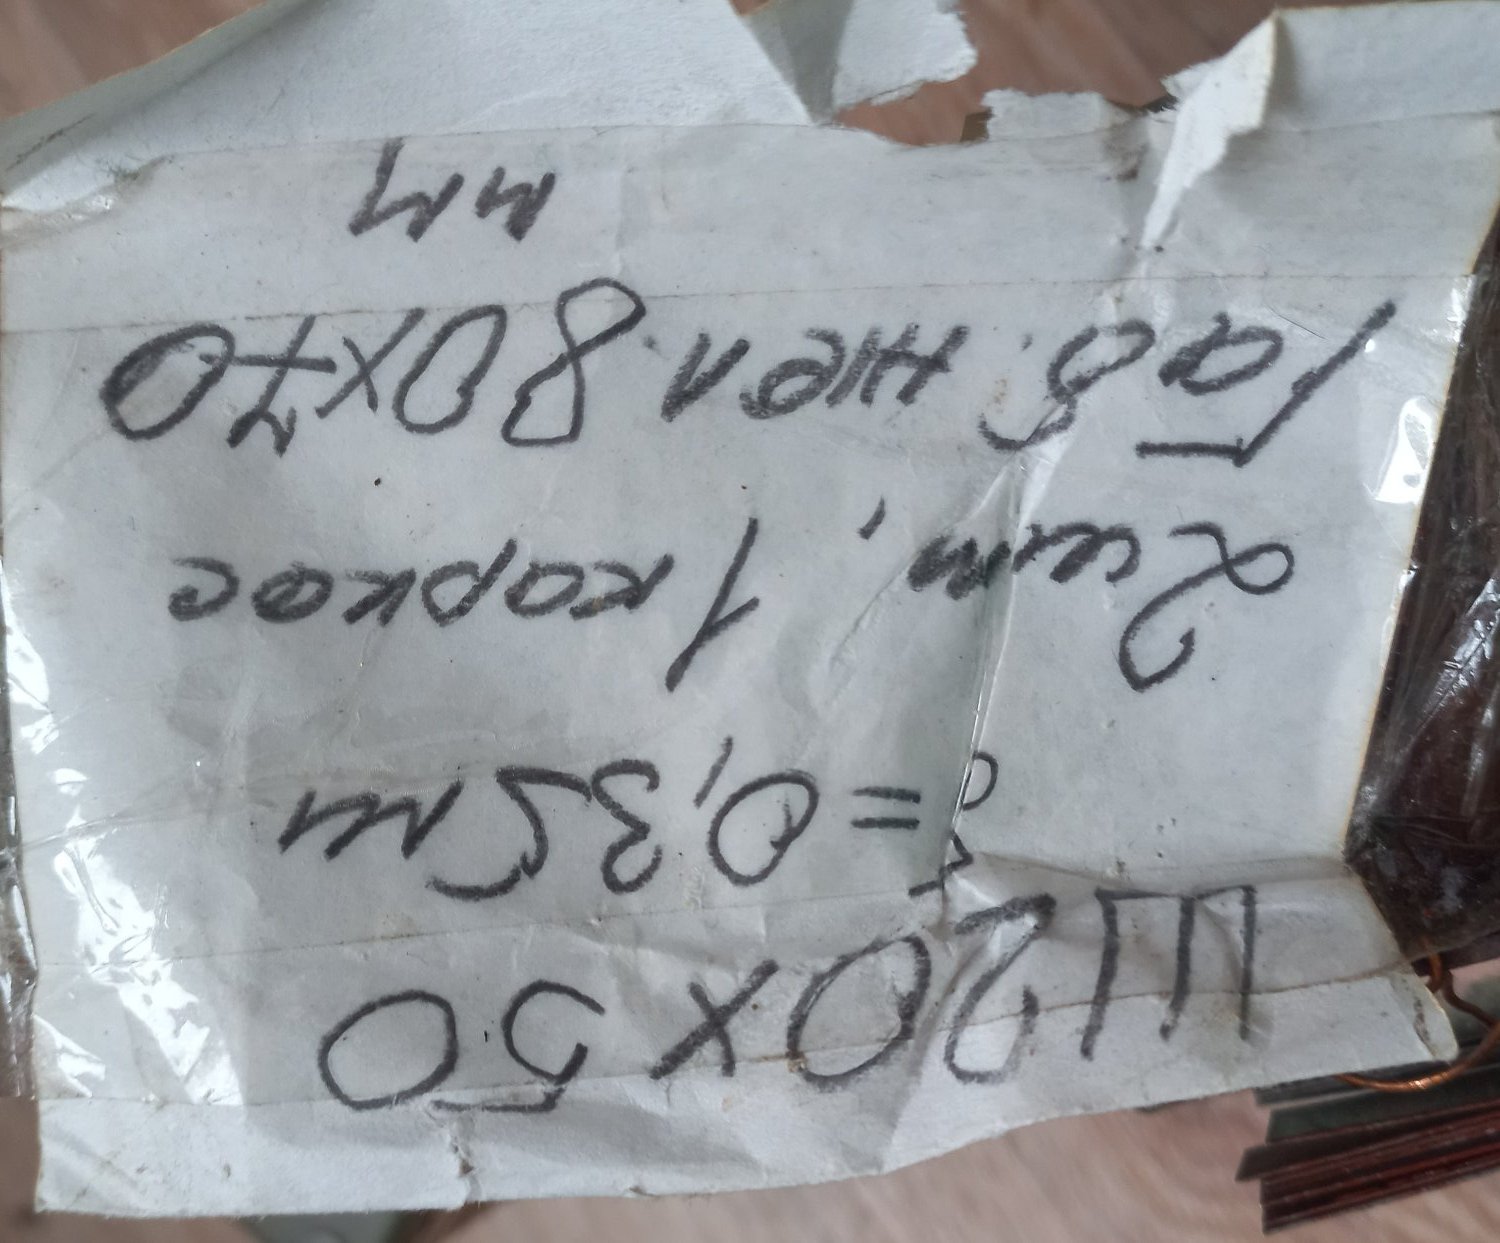 Ш20х50
δ=0,35м
2шт, 1 каркас
Габ. жел. 80х70
мм